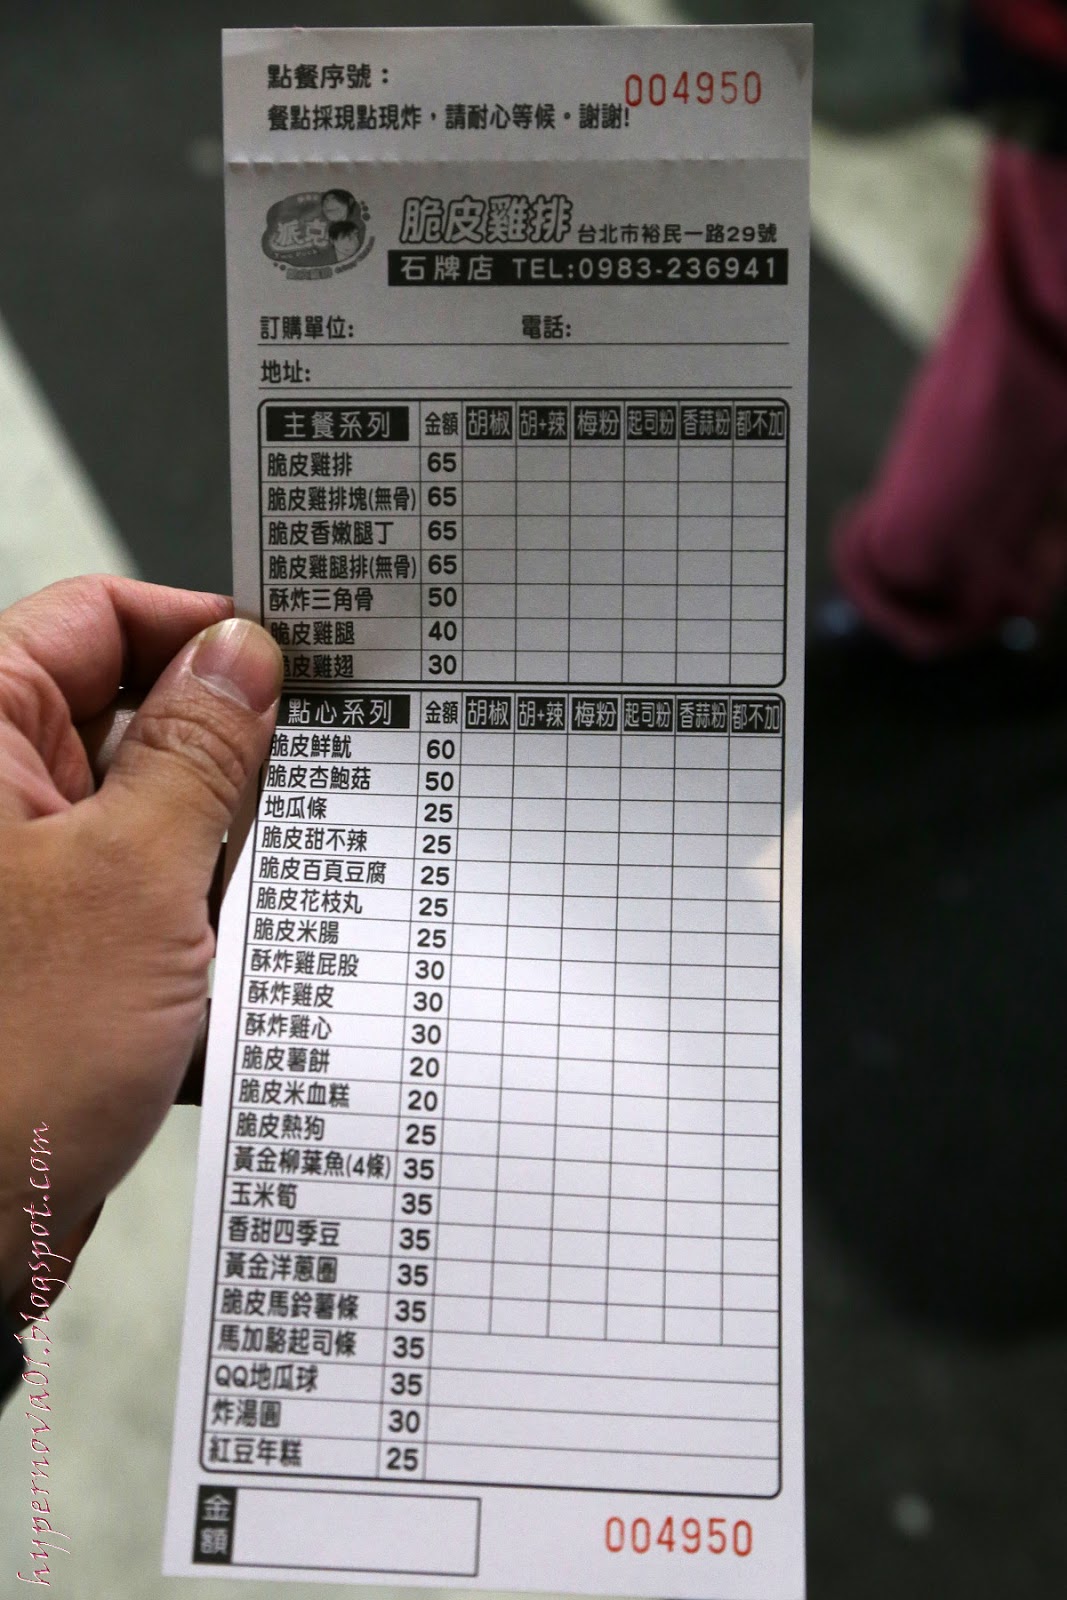 點餐序號： 004950
餐點採現點現炸，請耐心等候。謝謝!
派克
脆皮雞排 台北市裕民一路29號
石牌店 TEL:0983-236941
訂購單位: 電話:
地址:
主餐系列 金額 胡椒 胡+辣 梅粉 起司粉 香蒜粉 都不加
脆皮雞排 65
脆皮雞排塊(無骨) 65
脆皮香嫩腿丁 65
脆皮雞腿排(無骨) 65
酥炸三角骨 50
脆皮雞腿 40
脆皮雞翅 30
點心系列 金額 胡椒 胡+辣 梅粉 起司粉 香蒜粉 都不加
脆皮鮮魷 60
脆皮杏鮑菇 50
地瓜條 25
脆皮甜不辣 25
脆皮百頁豆腐 25
脆皮花枝丸 25
脆皮米腸 25
酥炸雞屁股 30
酥炸雞皮 30
酥炸雞心 30
脆皮薯餅 20
脆皮米血糕 20
脆皮熱狗 25
黃金柳葉魚(4條) 35
玉米筍 35
香甜四季豆 35
黃金洋蔥圈 35
脆皮馬鈴薯條 35
馬加駱起司條 35
QQ地瓜球 35
炸湯圓 30
紅豆年糕 25
金額
004950
hypernova01.blogspot.com